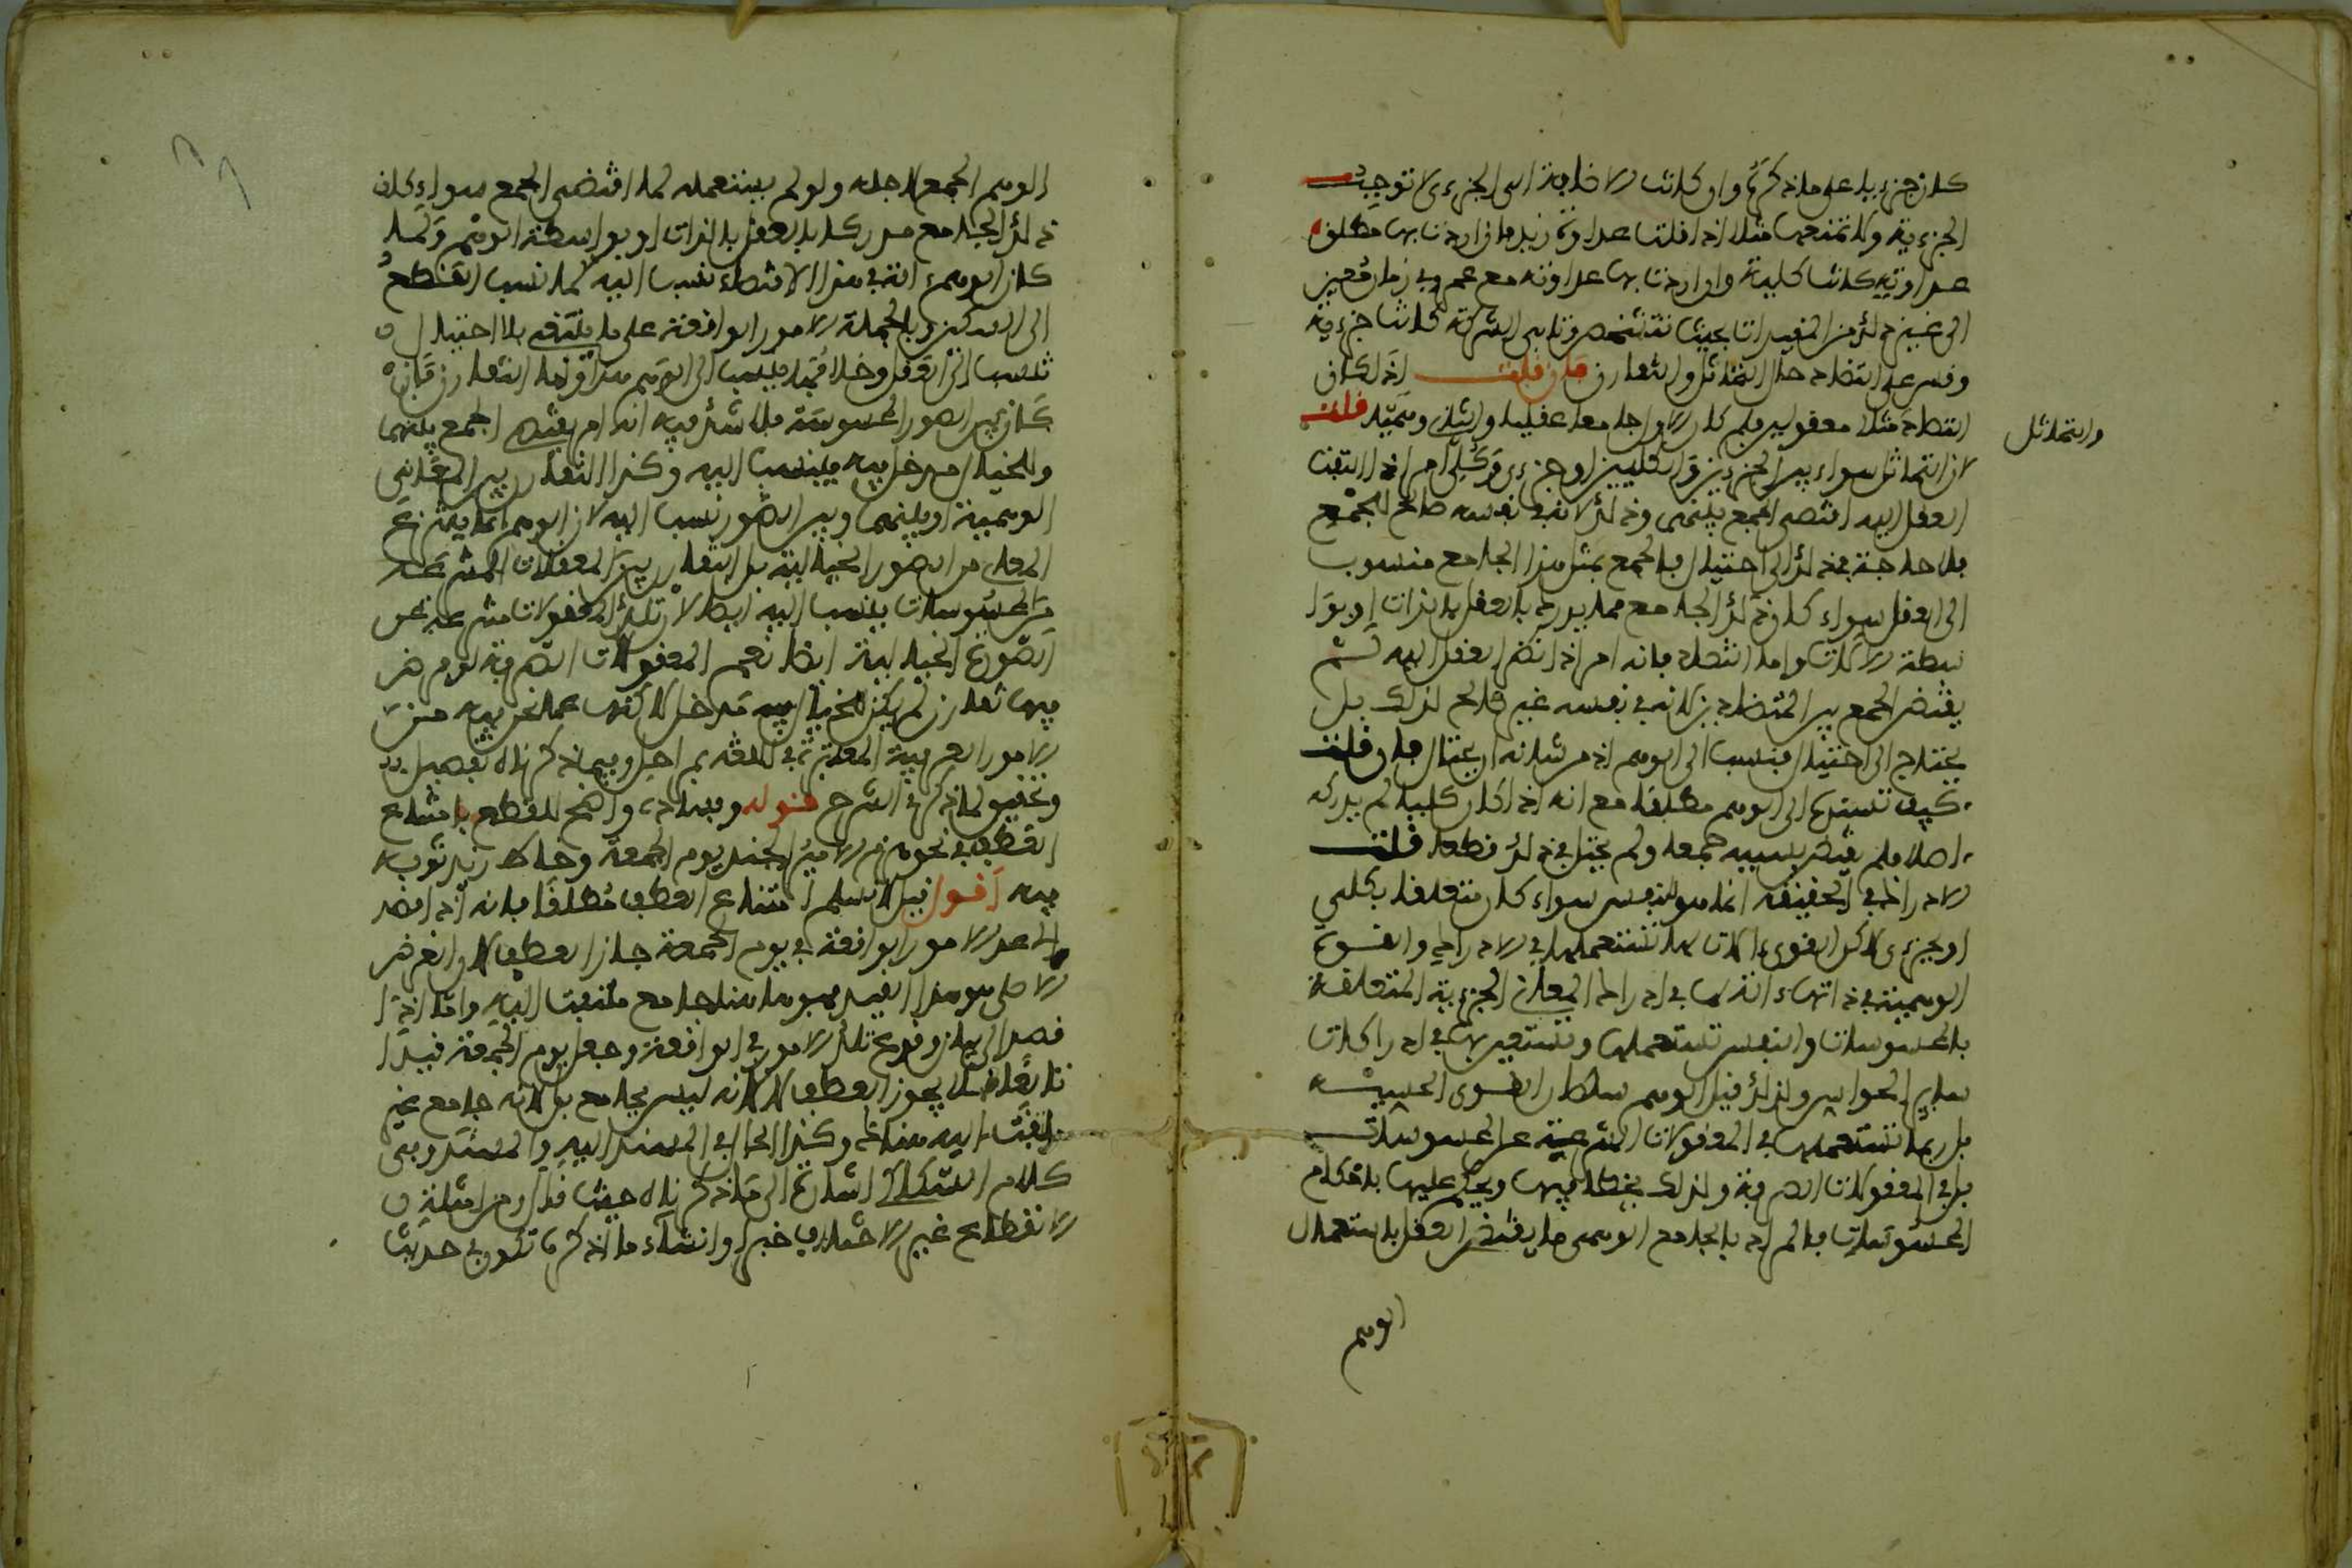 كان جزءيا على ما ذكرتم وان كانت الاضافة الى الجزءى لا توجب
الجزءية ولا تمنعها مثلا اذا قلت عداوة زيد فان اردت بها مطلق
عداوته كانت كلية وان اردت بها عداوته مع عمرو في زمان معين
الى غير ذلك من المقيدات بحيث تتشخص وتابى الشركة كانت جزءية
وقس على التضاد حال التماثل والتقارن فان قلت اذا كان
التضاد مثلا معقولا فلم كان الاول جامعا عقليا والثانى وهميا قلت
والتماثل
لان التماثل سواء بين الجزءيين والكليين او جزءى وكلى امر اذا التفت
العقل اليه اقتضى الجمع بينهما وذلك لانه في نفسه صالح للجمع
فلا حاجة في ذلك الى احتيال فالجمع بمثل هذا الجامع منسوب
الى العقل سواء كان ذلك الجامع مما يدركه العقل بالذات او بوا
سطة الالات واما التضاد فانه امر اذا نظر العقل اليه لم
يقتض الجمع بين المتضادين لانه في نفسه غير صالح لذلك بل
يحتاج الى احتيال فينسب الى الوهم اذ من شانه الاحتيال فان قلت
كيف تسند الى الوهم مطلقا مع انه اذا كان كليا لم يدركه
اصلا فلم يقتض بسببه جمعا ولم يحتل في ذلك قطعا قلت
الادراك في الحقيقة انما هو للنفس سواء كان متعلقا بكلي
او بجزءى لاكن القوى الات لها تستعملها في الادراك والقوة
الوهمية في ذاتها الة لها في ادراك المعاني الجزءية المتعلقة
بالمحسوسات والنفس تستعملها وتستعين بها في ادراكات
ساير الحواس ولذلك قيل الوهم سلطان القوى الحسية
بل ربما تستعملها في المعقولات المنتزعة عن المحسوسات
بل في المعقولات الصرفة ولذلك يخطا فيها ويحكم عليها باحكام
المحسوسات فالمراد بالجامع الوهمى ما يقتضى العقل باستعمال
الوهم
الوهم الجمع لاجله ولو لم يستعمله لما اقتضى الجمع سواء كان
ذلك الجامع مدركا بالعقل بالذات او بواسطة الوهم ولما
كان الوهم الة في هذا الاقتضاء نسب اليه كما نسب القطع
الى السكين وبالجملة الامور الواقعة على ما ينبغى بلا احتيال
تنسب الى العقل وخلافها ينسب الى الوهم هذا واما التقارن فان
كان بين الصور المحسوسة فلا شك فيه انه امر يقتضى الجمع بينهما
وللخيال مدخل فيه فينسب اليه وكذا التقارن بين المعانى
الوهمية او بينهما وبين الصور نسب اليه لان الوهم انما ينتزع
المعانى من الصور الخيالية بل التقارن بين المعقولات المنتزعة
من المحسوسات ينسب اليه ايضا لان تلك المعقولات منتزعة من
الصورة الخيالية ايضا نعم المعقولات الصرفة لو فرض
فيها تقارن لم يكن للخيال فيه مدخل لاكنها عما نحن فيه من
الامور العرفية المعتبرة في اللغة بمراحل وفيما ذكرناه تفصيل
وتحقيق لما ذكر في الشرح قوله وفساده واضح للقطع بامتناع
العطف في نحو هزم الامير الجند يوم الجمعة وخاط زيد ثوبه
فيه اقول قيل لا نسلم امتناع العطف مطلقا فانه اذا قصد
الى عد الامور الواقعة في يوم الجمعة جاز العطف لان الغرض
الاصلى هو هذا القيد فهو ها هنا جامع ملتفت اليه واما اذا
قصد الى بيان وقوع تلك الامور في الواقع وجعل يوم الجمعة قيدا
تابعا فلا يجوز العطف لا لانه ليس بجامع بل لانه جامع غير
ملتفت اليه هنا وكذا الحال في المسند اليه والمسند وفى
كلام السكاكى اشارة الى ما ذكرناه حيث قال ومن امثلة
الانقطاع غير الاختلاف خبرا وانشاء ما اذكره تكون في حديث